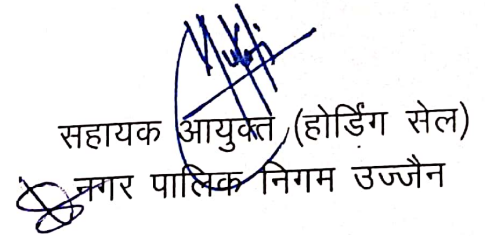 सहायक आयुक्त (होर्डिंग सेल)
नगर पालिक निगम उज्जैन